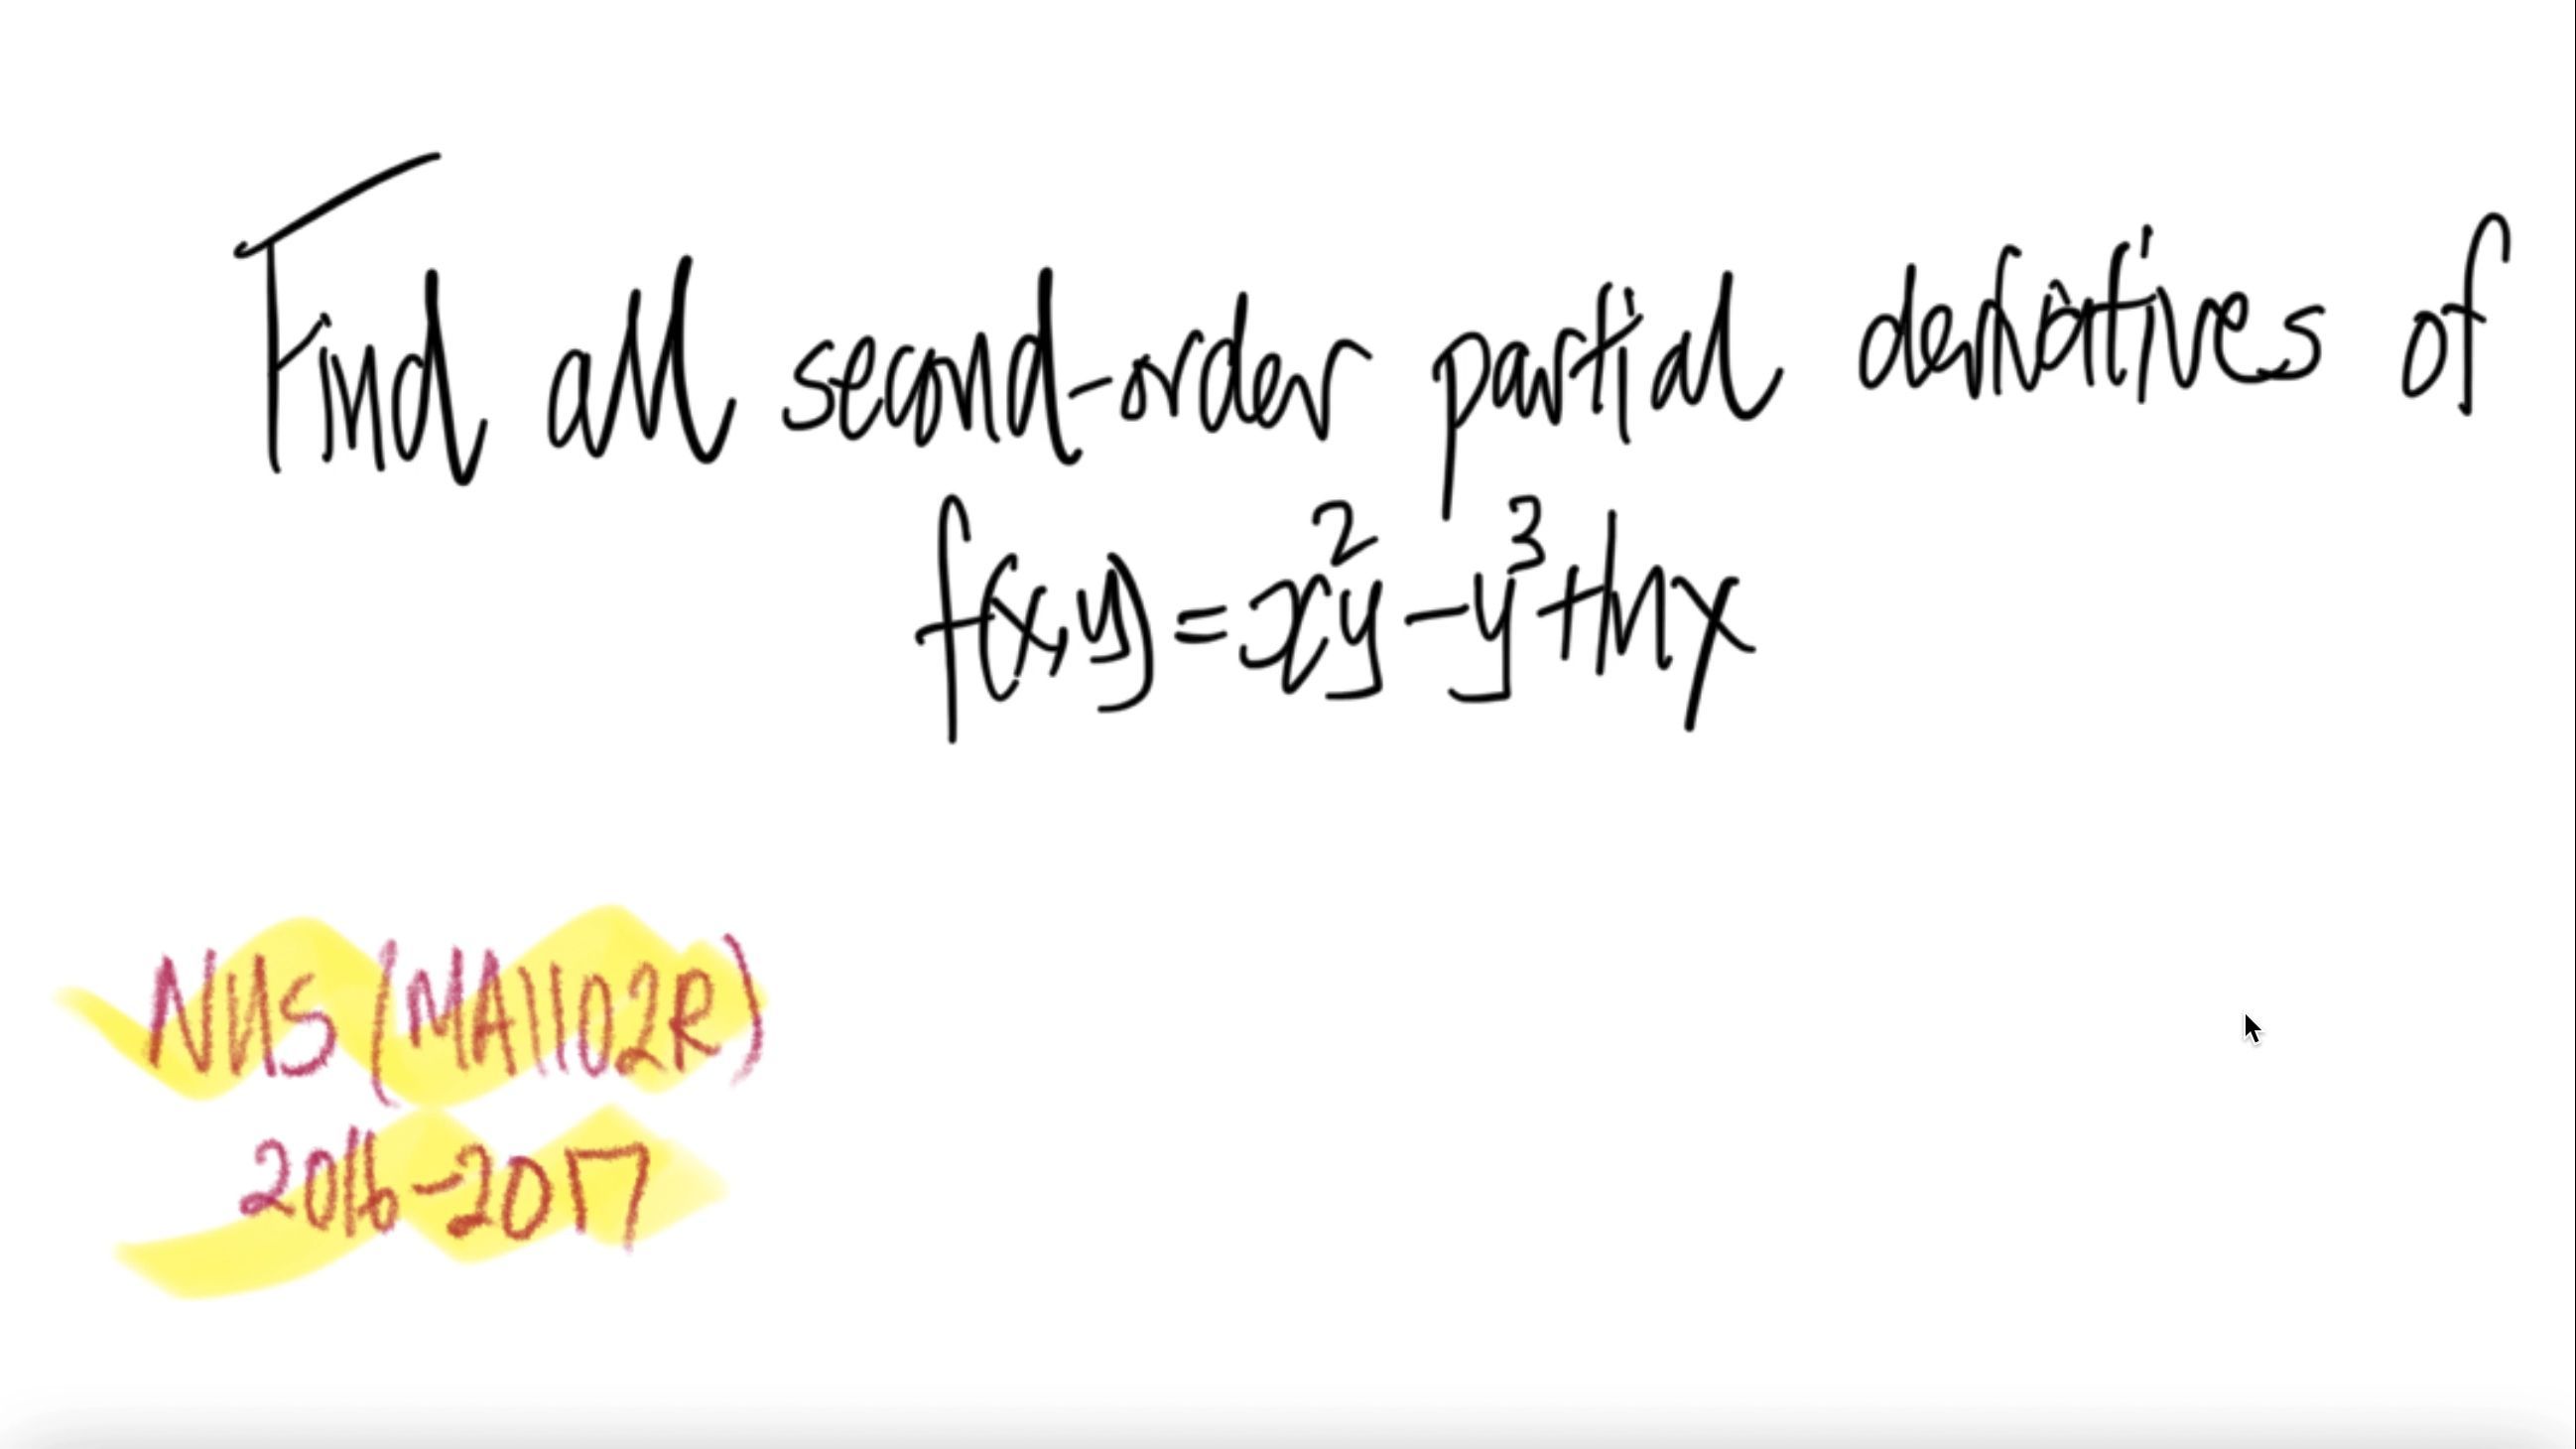 Find all second-order partial derivatives of
f(x,y)=x²y-y³+lnx
NUS (MA1102R)
2016-2017